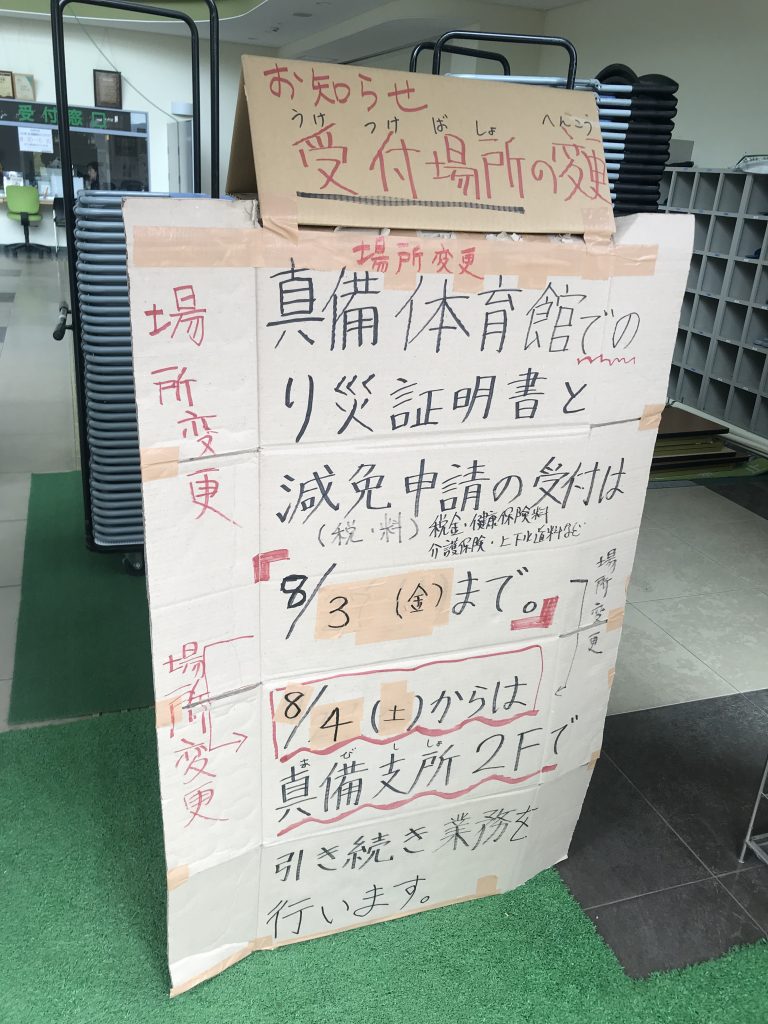 受付窓口
お知らせ
うけ つけ ば しょ へんこう
受付場所の変更
場所変更
場所変更
真備体育館での
り災証明書と
減免申請の受付は
(税・料) 税金・健康保険料
介護保険・上下水道料など
8/3 (金)まで。
場所変更
場所変更
8/4 (土)からは
まび ししょ
真備支所2Fで
引き続き業務を
行います。